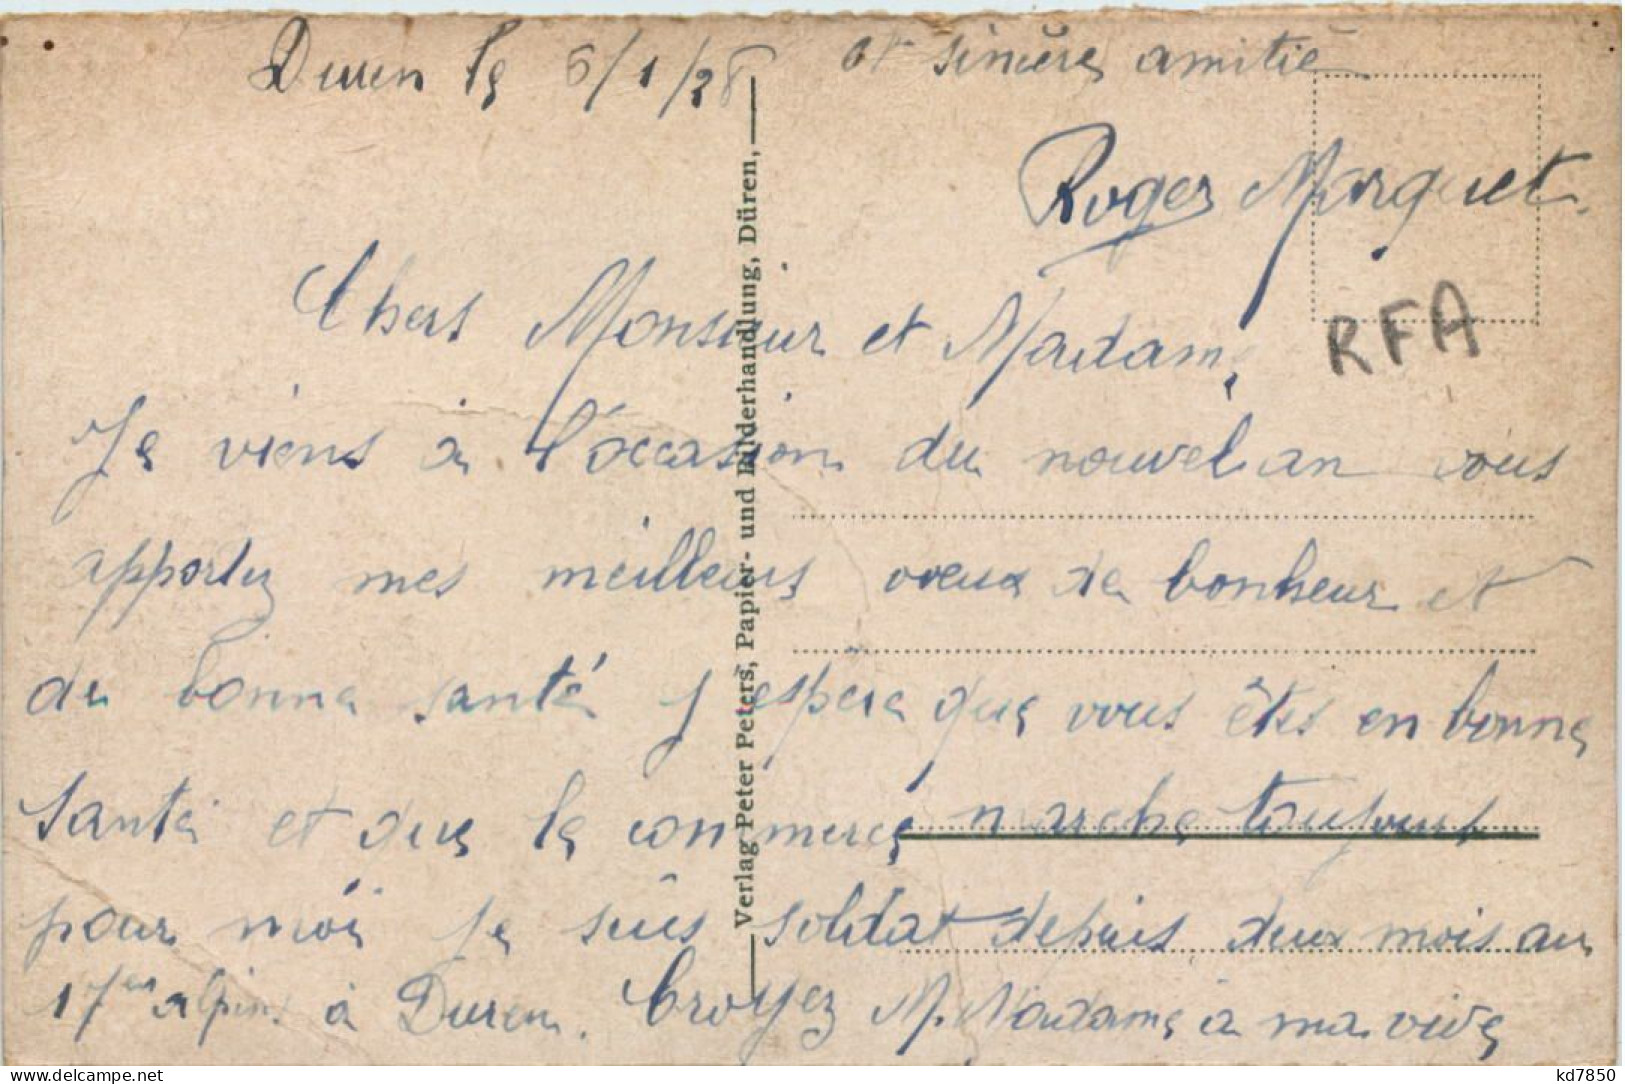 Duren le 6/1/28
et sincère amitié
Roger Marquet.
RFA
Chers Monsieur et Madame,
Je viens à l'occasion du nouvel an vous
apportez mes meilleurs voeux de bonheur et
de bonne santé j'espère que vous êtes en bonne
santé et que le commerce marche toujours
pour moi je suis soldat depuis deux mois au
17em alpins à Duren. Croyez M. Madame à ma vive
Verlag Peter Peters, Papier- und Bilderhandlung, Düren,
www.delcampe.net
kd7850